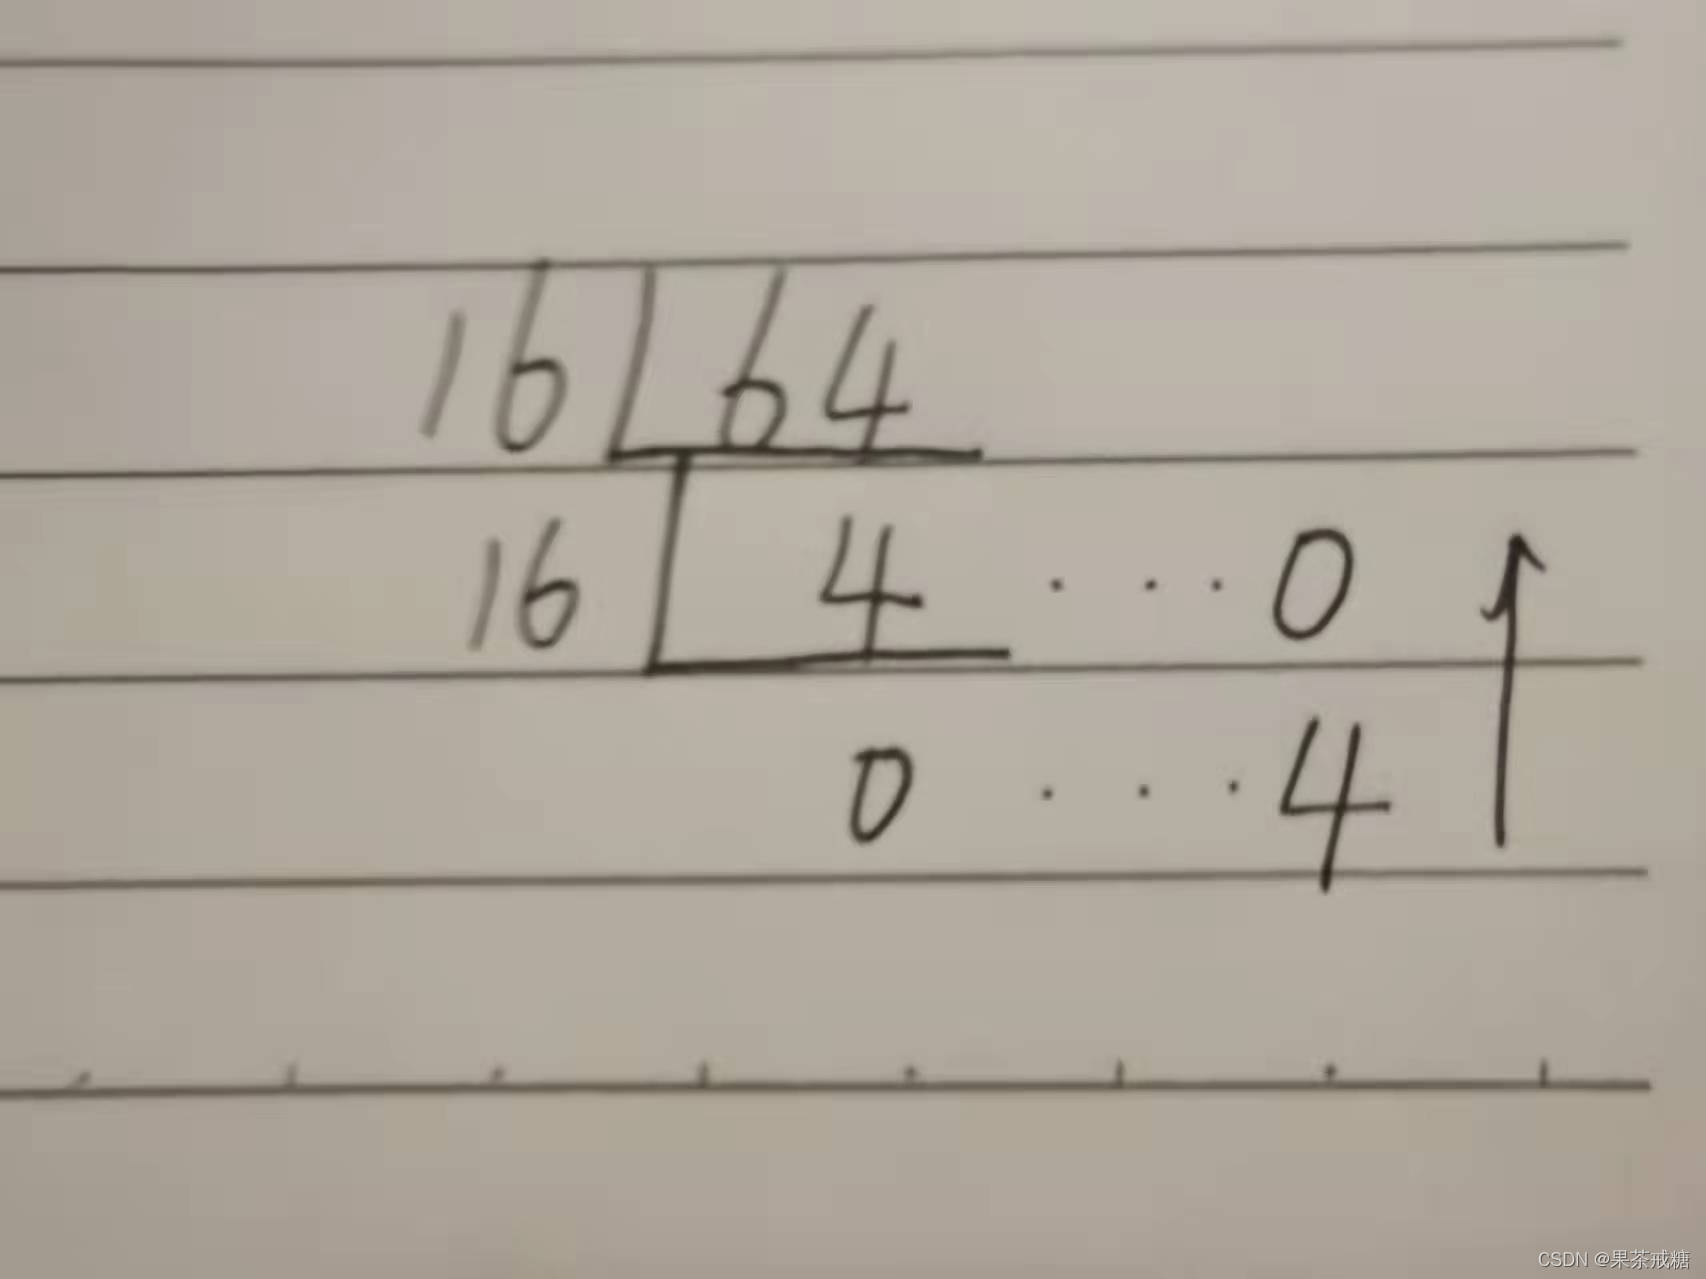 16 64
16 4 ··· 0
0 ··· 4
CSDN @果茶戒糖